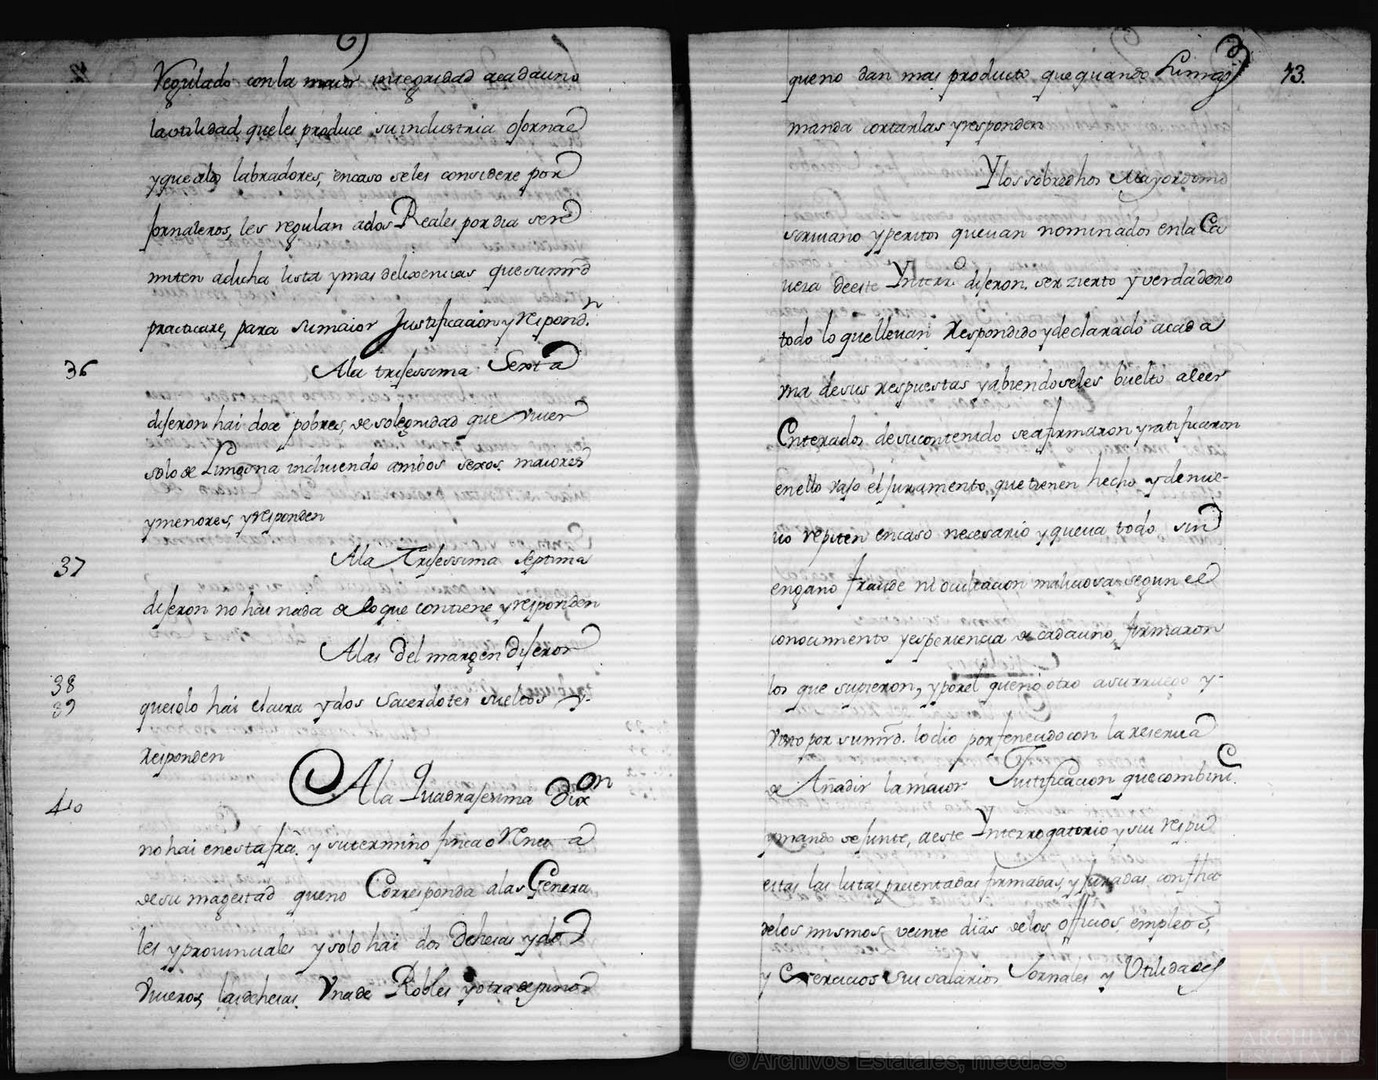 Regulado con la maior integridad a cada uno
la utilidad que les produce su industria o fornae
y que a los labradores, en caso se les considere por
Jornaleros, les regulan a dos Reales por dia se re
miten a dicha lista y mas delixencias que su mrd
practicare, para su maior Justificacion y respond.n
36
A la trisessima Sexta
dijeron hai doce pobres de solegnidad que viven
solo de Limosna incluiendo ambos sexos maiores
y menores, y responden
37
A la Trisessima septima
dijeron no hai nada de lo que contiene y responden
A las del margen dijeron
38
39
que solo hai el cura y dos Sacerdotes sueltos y
Responden
40
A la Quadrajesima Dixon
no hai en esta fra. y su termino finca o Renta
de su magestad que no Corresponda a las Genera
les y provinciales y solo hai dos Dehesas y dos
Viveros, las dehesas Una de Robles y otra de pinos
43.
que no dan mas producto que quando su mag
manda cortarlas y responden
Y los sobredhos Mayordomo
scrivano y peritos que van nominados en la Ca
vera de este Ynterr.o dijeron, ser zierto y verdadero
todo lo que llevan Respondido y declarado a cada
una de sus respuestas y abiendoseles buelto a leer
Enterados de su contenido se afirmaron y ratificaron
en ello vajo el juramento, que tienen hecho y de nue-
vo repiten en caso necesario y que va todo sin
engano fraude ni ocultacion maliciosa segun el
conocimiento y esperiencia de cada uno, firmaron
los que supieron, y por el que no, otro a su rruego y
Visto por su mrd. lo dio por fenecido con la reserva
de Añadir la maior Justificacion que combin.
mando se junte, a este Ynterrogatorio y sus respu
estas las listas presentadas firmadas, y juradas con fha
de los mismos veinte dias de los officios, empleos,
y Exercicios Sus salarios Jornales y Utilidades
© Archivos Estatales, mecd.es
AE
ARCHIVOS
ESTATALES